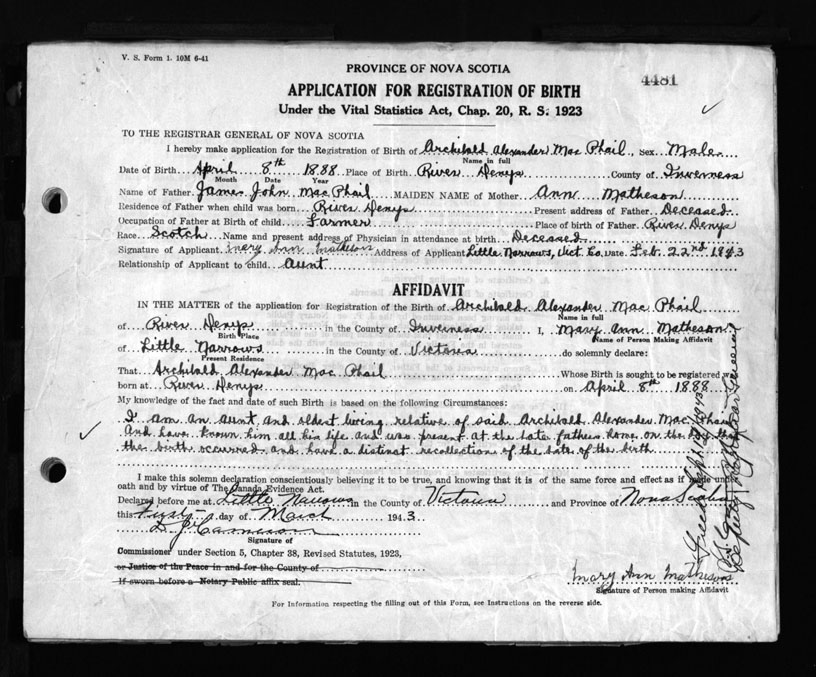 V. S. Form 1. 10M 6-41
PROVINCE OF NOVA SCOTIA
4481
APPLICATION FOR REGISTRATION OF BIRTH
Under the Vital Statistics Act, Chap. 20, R. S. 1923
TO THE REGISTRAR GENERAL OF NOVA SCOTIA
I hereby make application for the Registration of Birth of Archibald Alexander Mac Phail, Sex Male
Name in full
Date of Birth April 8th 1888 Place of Birth River Denys County of Inverness
Month Date Year
Name of Father James John Mac Phail MAIDEN NAME of Mother Ann Matheson
Residence of Father when child was born River Denys Present address of Father Deceased
Occupation of Father at Birth of child Farmer Place of birth of Father River Denys
Race Scotch Name and present address of Physician in attendance at birth Deceased
Signature of Applicant Mary Ann Matheson Address of Applicant Little Narrows, Vict. Co. Date Feb. 22nd 1943
Relationship of Applicant to child Aunt
AFFIDAVIT
IN THE MATTER of the application for Registration of the Birth of Archibald Alexander Mac Phail
Name in full
of River Denys in the County of Inverness I, Mary Ann Matheson
Birth Place Name of Person Making Affidavit
of Little Narrows in the County of Victoria do solemnly declare:
Present Residence
That Archibald Alexander Mac Phail Whose Birth is sought to be registered was
born at River Denys on April 8th 1888
My knowledge of the fact and date of such Birth is based on the following Circumstances:
I am an aunt and oldest living relative of said Archibald Alexander Mac Phail
And have known him all his life and was present at the late fathers home on the day that
the birth occurred and have a distinct recollection of the date of the birth
I make this solemn declaration conscientiously believing it to be true, and knowing that it is of the same force and effect as if made under
oath and by virtue of The Canada Evidence Act.
Declared before me at Little Narrows in the County of Victoria and Province of Nova Scotia
this First day of March 1943
D J Cameron
Signature of
Commissioner under Section 5, Chapter 38, Revised Statutes, 1923,
or Justice of the Peace in and for the County of
If sworn before a Notary Public affix seal.
Mary Ann Matheson
Signature of Person making Affidavit
For Information respecting the filling out of this Form, see Instructions on the reverse side.
Deputy Registrar General